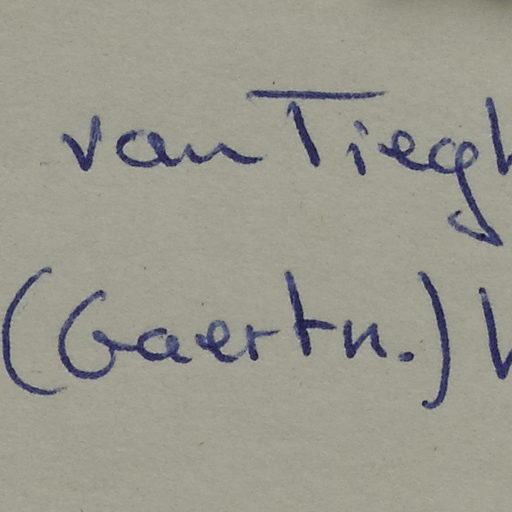 van Tiegh
(Gaertn.)